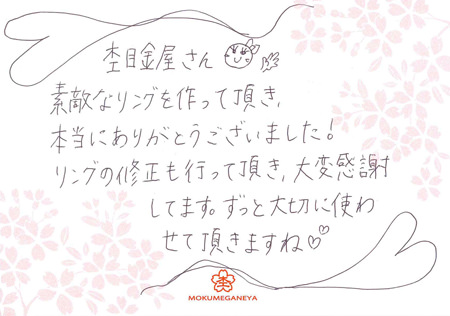 杢目金屋さん
素敵なリングを作って頂き、
本当にありがとうございました!
リングの修正も行って頂き、大変感謝
してます。ずっと大切に使わ
せて頂きますね♡♡
MOKUMEGANEYA